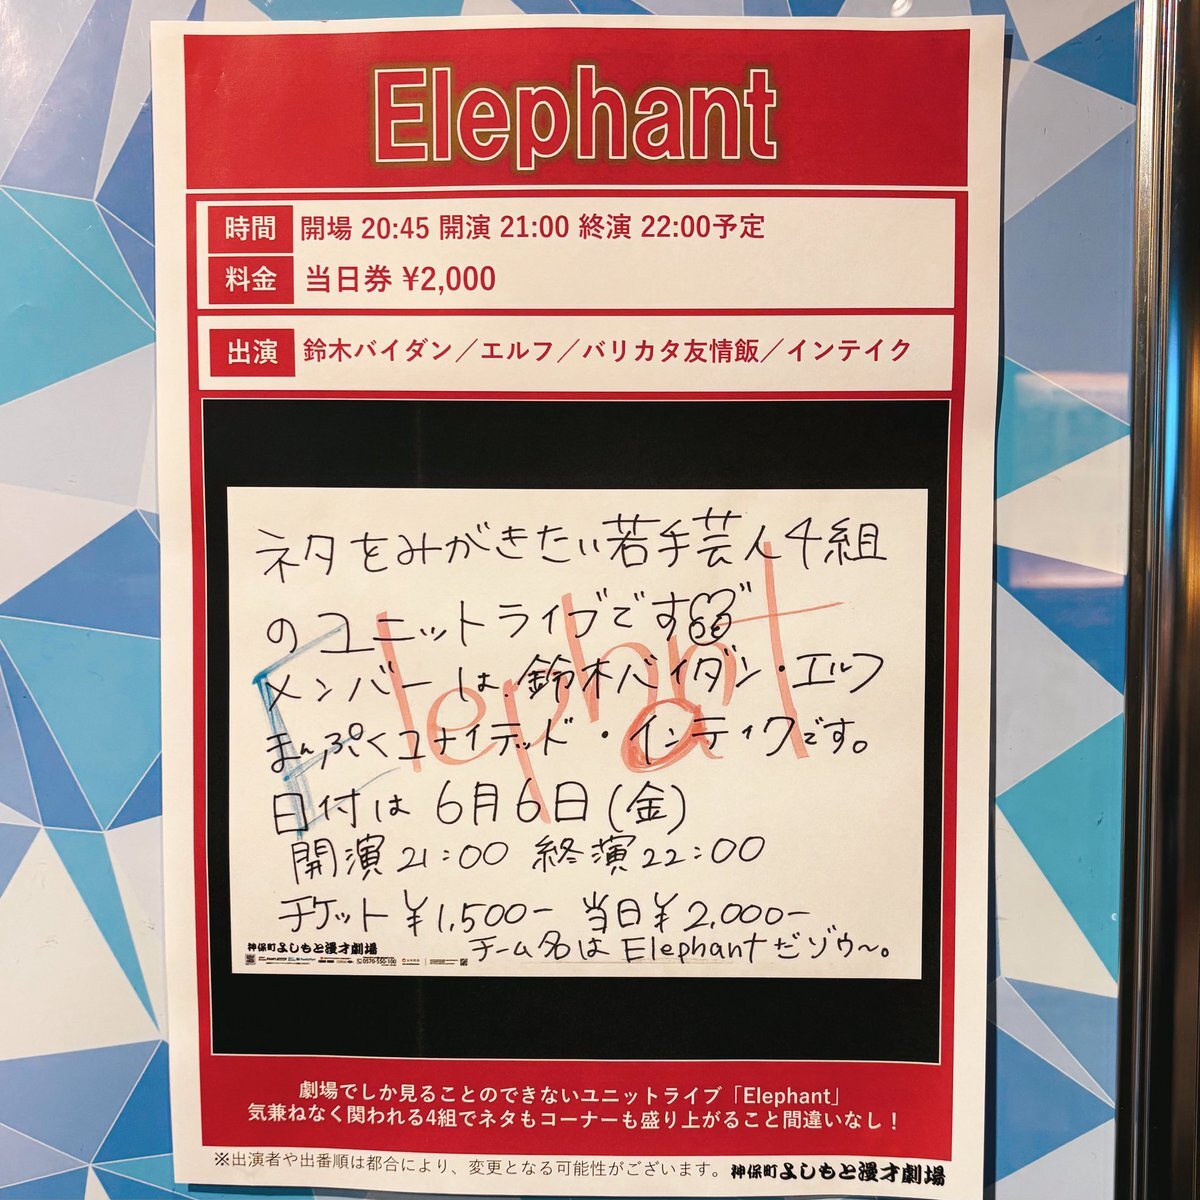 Elephant
時間 開場 20:45 開演 21:00 終演 22:00予定
料金 当日券 ¥2,000
出演 鈴木バイダン／エルフ／バリカタ友情飯／インテイク
ネタをみがきたい若手芸人4組
のユニットライブです
Elephant
メンバーは、鈴木バイダン・エルフ
まんぷくユナイテッド・インテイクです。
日付は 6月6日(金)
開演21:00 終演22:00
チケット¥1,500ー 当日¥2,000ー
チーム名はElephantだゾウ〜。
神保町よしもと漫才劇場
0570-550-100
劇場でしか見ることのできないユニットライブ「Elephant」
気兼ねなく関われる4組でネタもコーナーも盛り上がること間違いなし！
※出演者や出番順は都合により、変更となる可能性がございます。 神保町よしもと漫才劇場